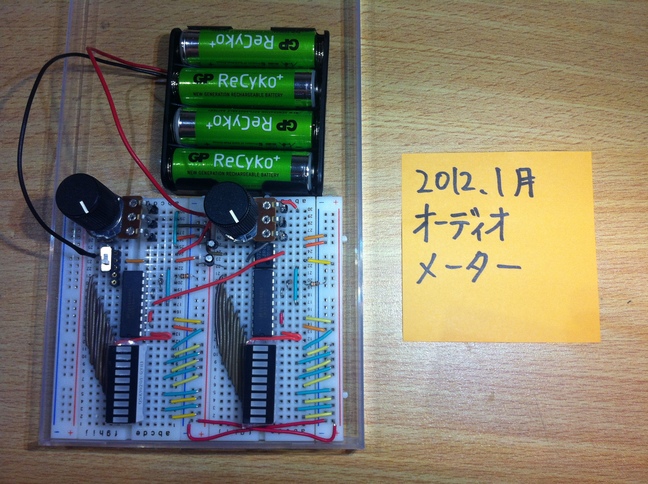 ReCyko+
GP
GP ReCyko+
NEW GENERATION RECHARGEABLE BATTERY
ReCyko+
GP
GP ReCyko+
NEW GENERATION RECHARGEABLE BATTERY
2012.1月
オーディオ
メーター
f g h i j
a b c d e
f g h i j